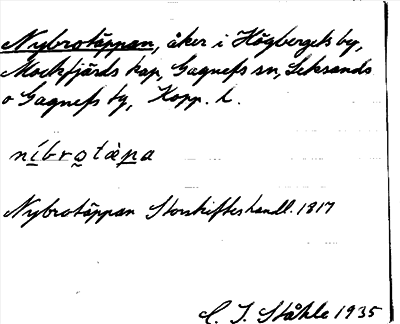 Nybrotäppan, åker i Högbergets by,
Mockfjärds kap, Gagnefs sn, Leksands
o Gagnefs tg, Kopp. l.
níbrotàpa
Nybrotäppan Storskifteshandl. 1817
C. I. Ståhle 1935